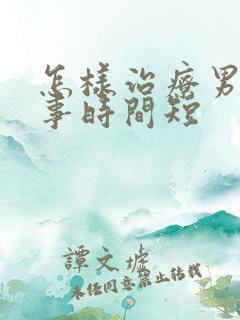 怎樣治療男
事時間短
譚文堓
未經同意禁止轉載